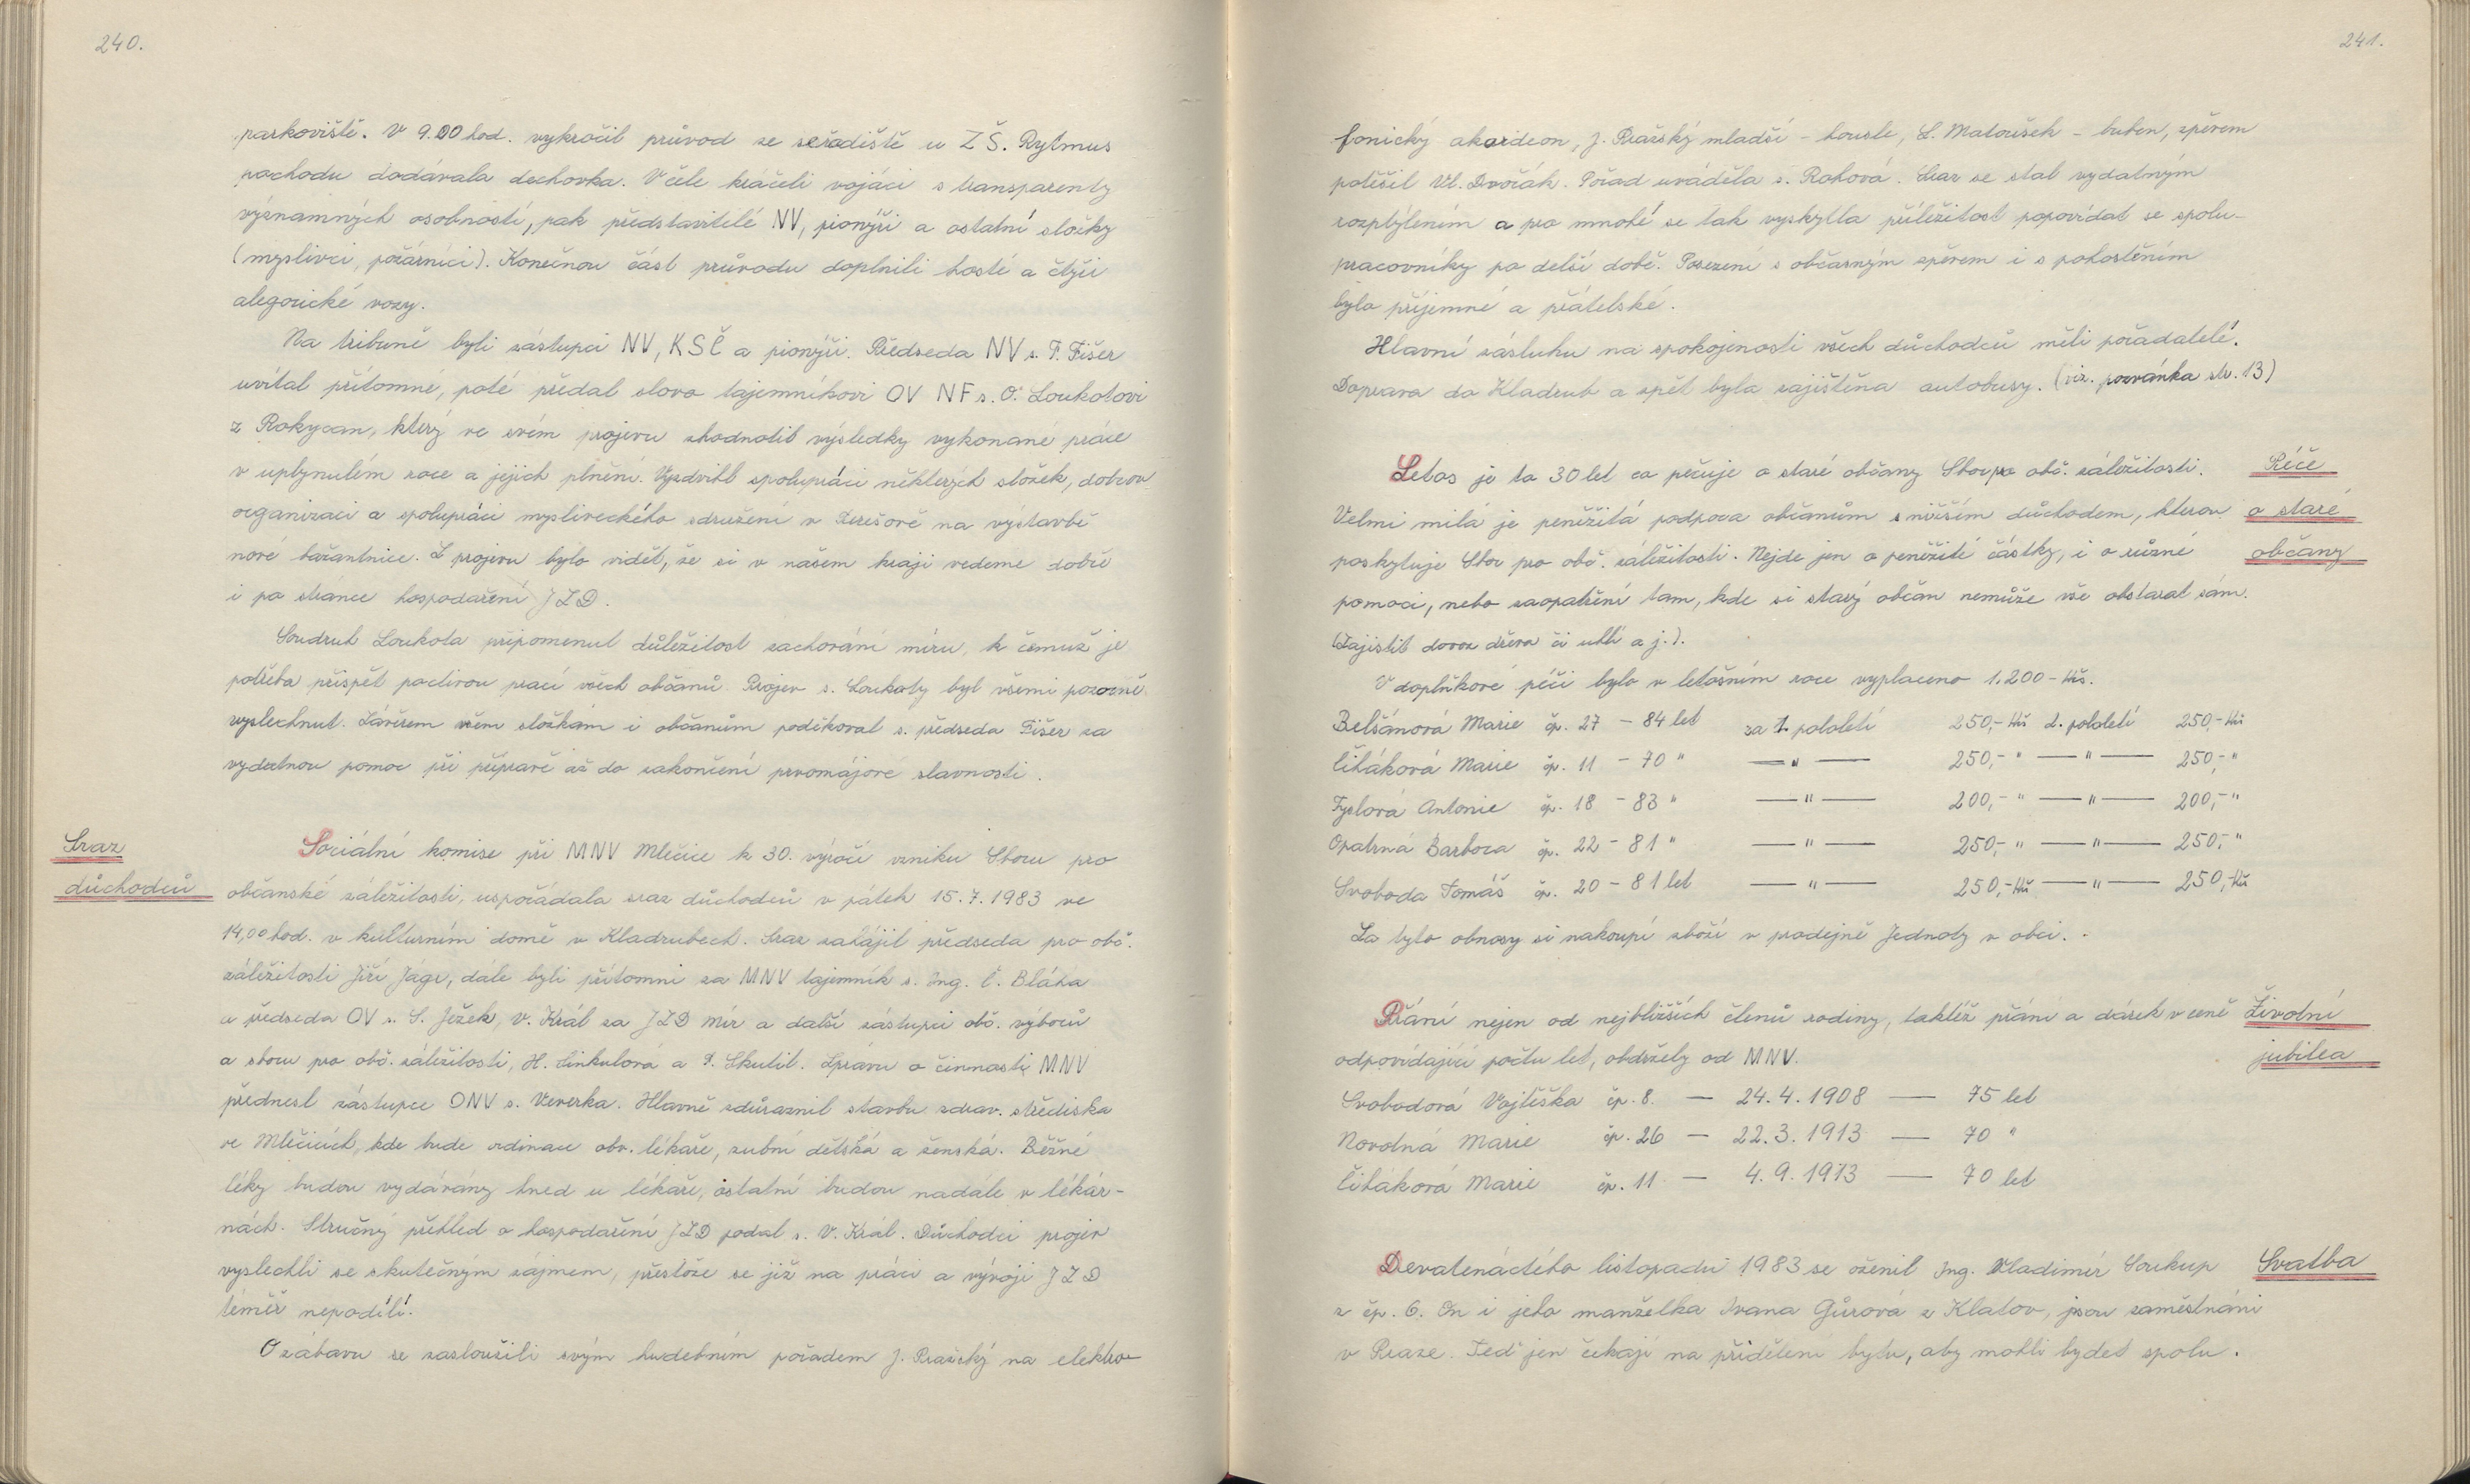 240.
parkoviště. V 9.00 hod. vykročil průvod ze seřadiště u ZŠ. Rytmus
pochodu dodávala dechovka. V čele kráčeli vojáci s transparenty
významných osobností, pak představitelé NV, pionýři a ostatní složky
(myslivci, požárníci). Konečnou část průvodu doplnili hosté a čtyři
alegorické vozy.
Na tribuně byli zástupci NV, KSČ a pionýři. Předseda NV s. F. Fišer
uvítal přítomné, poté předal slovo tajemníkovi OV NF s. O. Loukotovi
z Rokycan, který ve svém projevu zhodnotil výsledky vykonané práce
v uplynulém roce a jejich plnění. Vyzdvihl spolupráci některých složek, dobrov.
organizací a spolupráci mysliveckého sdružení v Terešově na výstavbě
nové bažantnice. Z projevu bylo vidět, že si v našem kraji vedeme dobře
i po stránce hospodaření JZD.
Soudruh Loukota připomenul důležitost zachování míru, k čemuž je
potřeba přispět poctivou prací všech občanů. Projev s. Loukoty byl všemi pozorně
vyslechnut. Závěrem všem složkám i občanům poděkoval s. předseda Fišer za
vydatnou pomoc při přípravě až do zakončení prvomájové slavnosti.
Sraz
důchodců
Sociální komise při MNV Mlečice k 30. výročí vzniku Sboru pro
občanské záležitosti, uspořádala sraz důchodců v pátek 15.7.1983 ve
14,00 hod. v kulturním domě v Kladrubech. Sraz zahájil předseda pro obč.
záležitosti Jiří Jágr, dále byli přítomni za MNV tajemník s. Ing. Č. Bláha
a předseda OV s. S. Ježek, V. Král za JZD Mír a další zástupci obč. výborů
a sboru pro obč. záležitosti, H. Cinkulová a P. Skulil. Zprávu o činnosti MNV
přednesl zástupce ONV s. Veverka. Hlavně zdůraznil stavbu zdrav. střediska
ve Mlečicích, kde bude ordinace obv. lékaře, zubní dětská a ženská. Běžné
léky budou vydávány hned u lékaře, ostatní budou nadále v lékár-
nách. Stručný přehled o hospodaření JZD podal s. V. Král. Důchodci projev
vyslechli se skutečným zájmem, přestože se již na práci a vývoji JZD
téměř nepodílí.
O zábavu se zasloužili svým hudebním pořadem J. Pražský na elektro-
241.
fonický akordeon, J. Pražský mladší - housle, L. Matoušek - buben, zpěvem
potěšil Vl. Dvořák. Pořad uváděla s. Rohová. Sraz se stal vydatným
rozptýlením a pro mnohé se tak vyskytla příležitost popovídat se spolu-
pracovníky po delší době. Posezení s občasným zpěvem i s pohoštěním
bylo příjemné a přátelské.
Hlavní zásluhu na spokojenosti všech důchodců měli pořadatelé.
Doprava do Kladrub a zpět byla zajištěna autobusy. (viz. pozvánka str. 13)
Péče
o staré
občany
Letos je to 30 let co pečuje o staré občany Sbor pro obč. záležitosti.
Velmi milá je peněžitá podpora občanům s nižším důchodem, kterou
poskytuje Sbor pro obč. záležitosti. Nejde jen o peněžité částky, i o různé
pomoci, nebo zaopatření tam, kde si starý občan nemůže vše obstarat sám.
(Zajistit dovoz dřeva či uhlí a j.).
V doplňkové péči bylo v letošním roce vyplaceno 1.200 - Kčs.
Belšánová Marie čp. 27 - 84 let za 1. pololetí 250,- Kčs 2. pololetí 250,- Kčs
Čiháková Marie čp. 11 - 70 " — " — 250,- " — " — 250,- "
Fyslová Antonie čp. 18 - 83 " — " — 200,- " — " — 200,- "
Opatrná Barbora čp. 22 - 81 " — " — 250,- " — " — 250,- "
Svoboda Tomáš čp. 20 - 81 let — " — 250,- Kčs — " — 250,- Kčs
Za tyto obnosy si nakoupí zboží v prodejně Jednoty v obci.
Životní
jubilea
Přání nejen od nejbližších členů rodiny, taktéž přání a dárek v ceně
odpovídající počtu let, obdržely od MNV.
Svobodová Vojtěška čp. 8. — 24.4.1908 — 75 let
Novotná Marie čp. 26 — 22.3.1913 — 70 "
Čiháková Marie čp. 11 — 4.9.1913 — 70 let
Svatba
Devatenáctého listopadu 1983 se oženil Ing. Vladimír Soukup
z čp. 6. On i jeho manželka Ivana Gůrová z Klatov, jsou zaměstnáni
v Praze. Teď jen čekají na přidělení bytu, aby mohli bydet spolu.